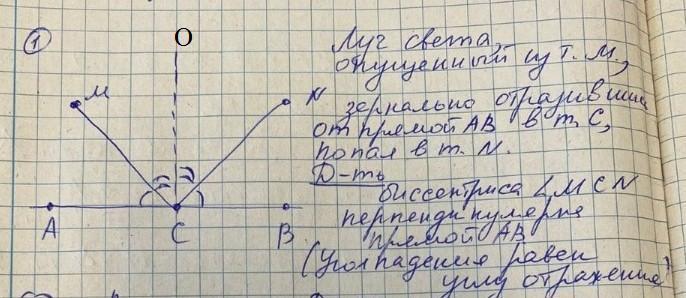 1
O
M
N
A
C
B
Луч света,
опущенный из т. М,
зеркально отразившись
от прямой АВ в т. С,
попал в т. N.
Д-ть
биссектриса ∠MCN
перпендикулярна
прямой АВ
(Угол падения равен
углу отражения)